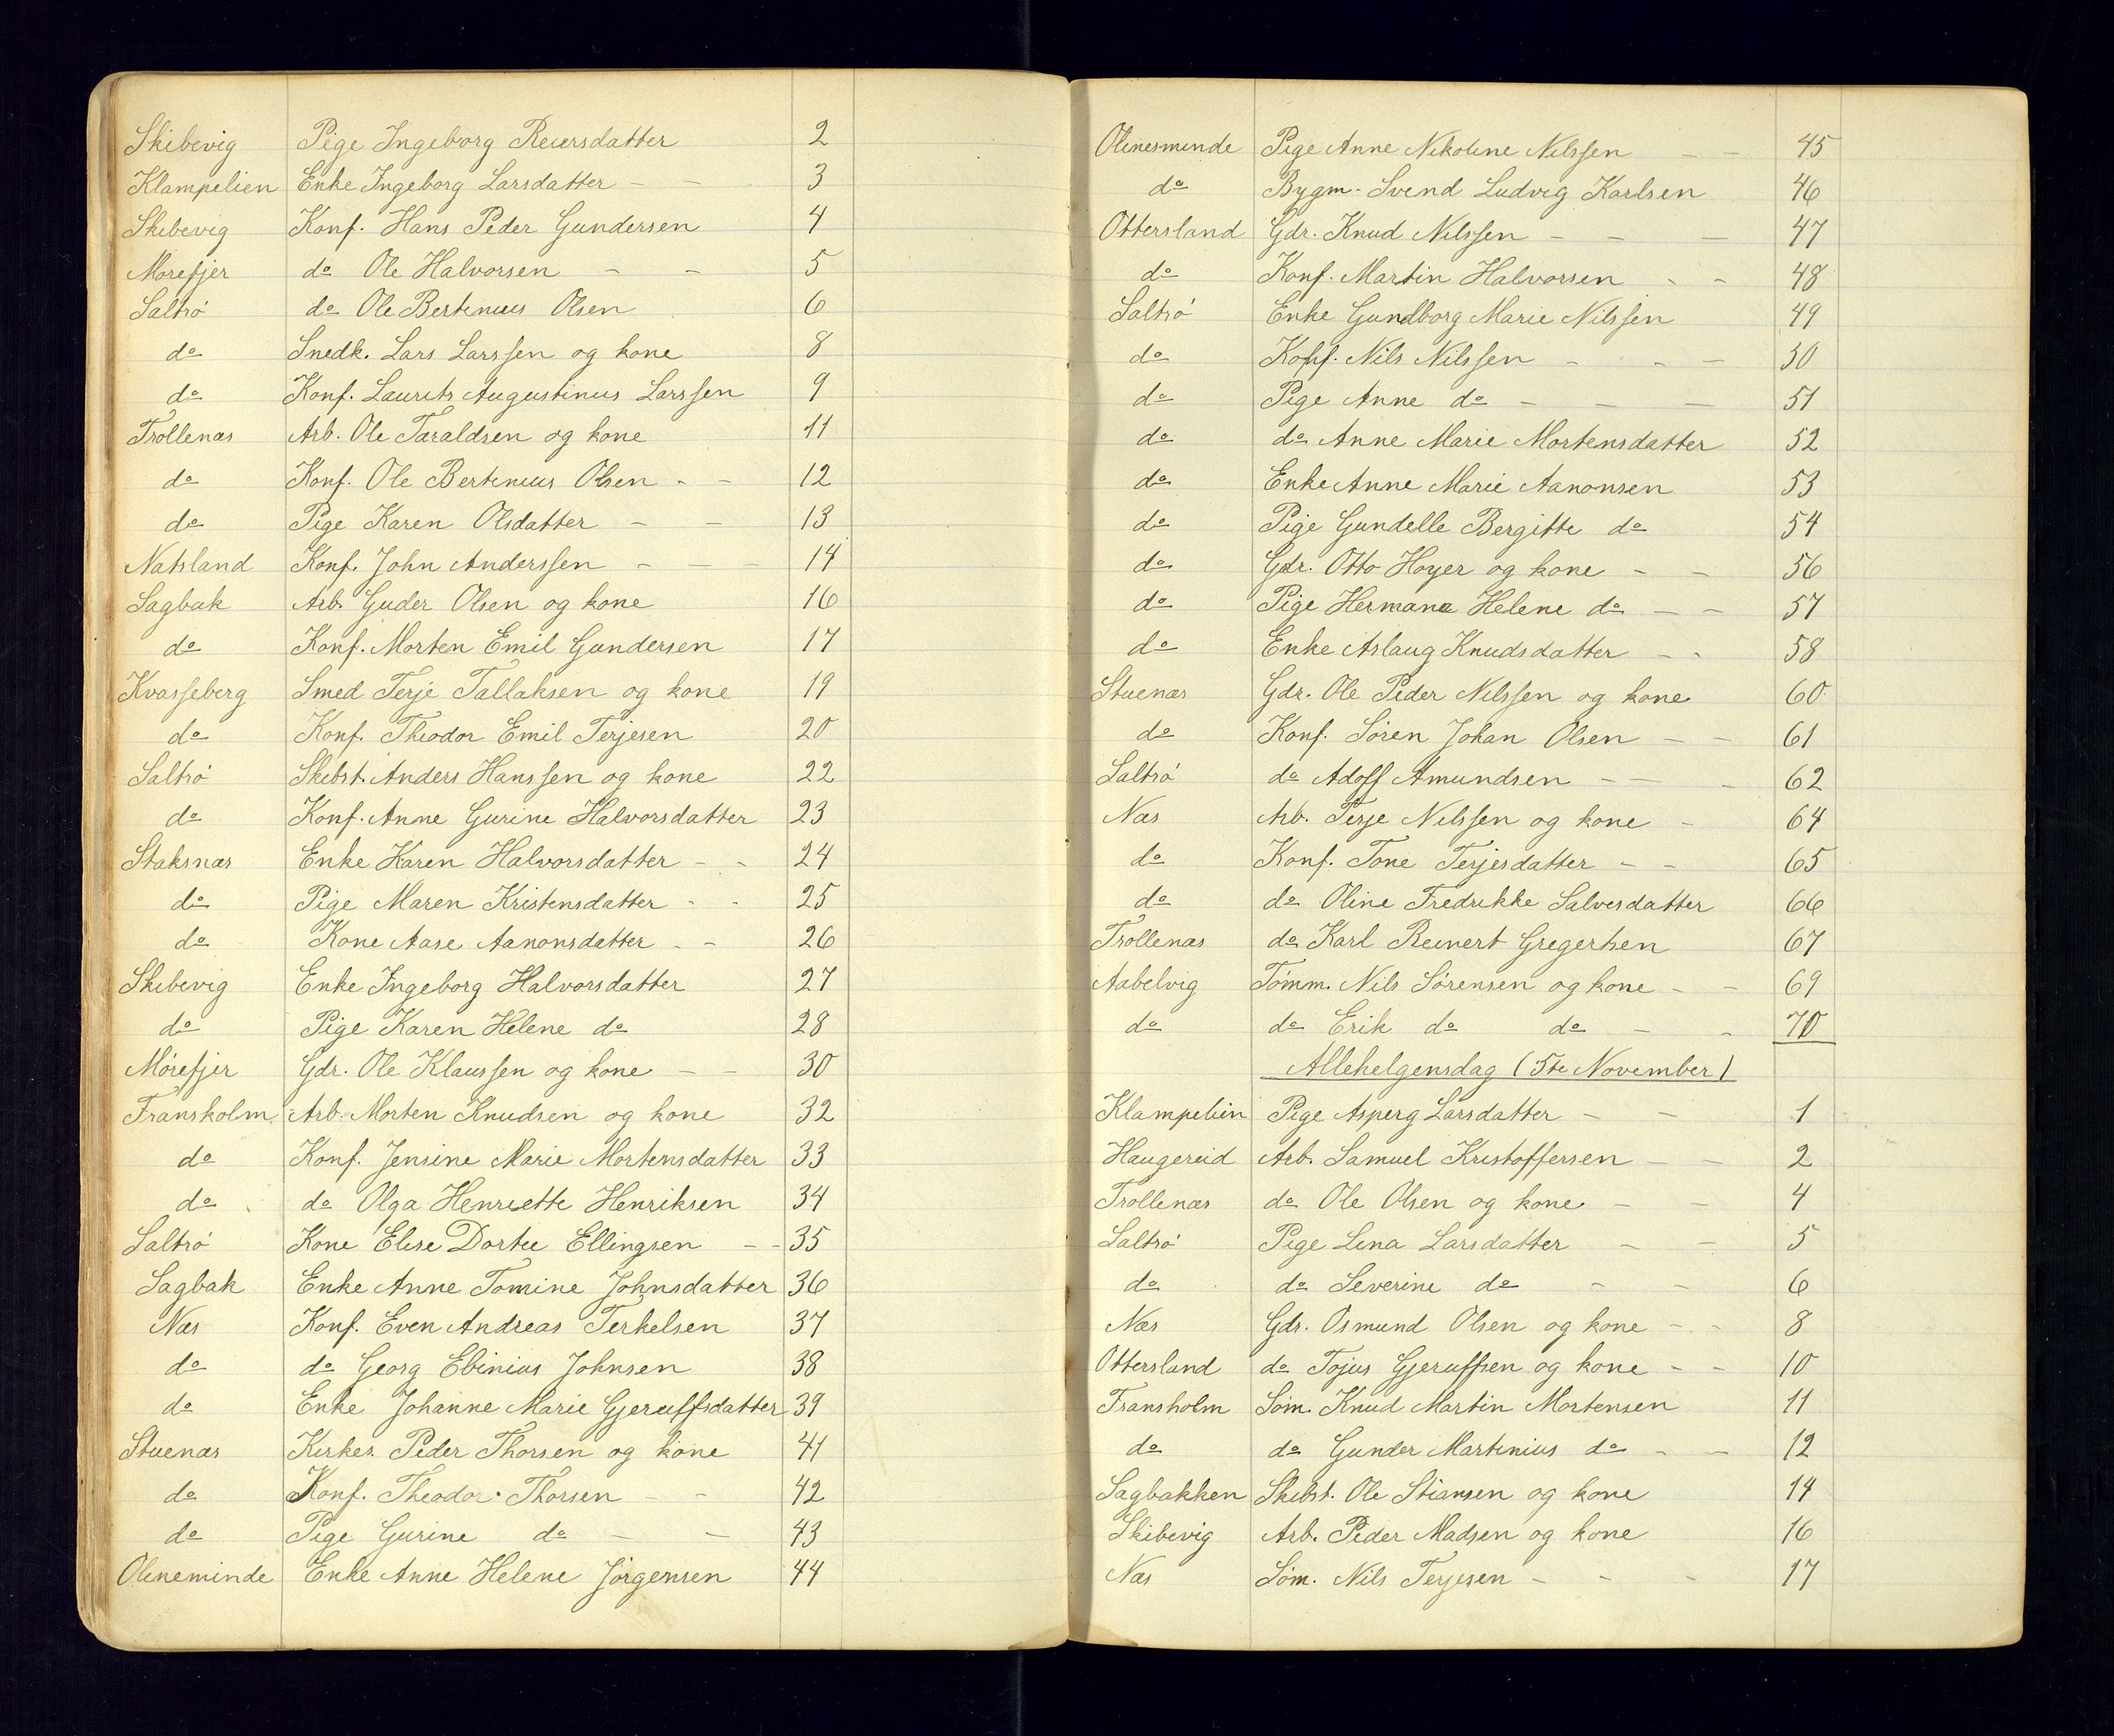 Skibevig Pige Ingeborg Reiersdatter 2
Klampelien Enke Ingeborg Larsdatter - - 3
Skibevig Konf. Hans Peder Gundersen 4
Morefjer do Ole Halvorsen - - 5
Saltrö do Ole Bertinius Olsen 6
do Snedk. Lars Larssen og kone 8
do Konf. Laurits Augustinus Larssen 9
Trollenæs Arb. Ole Taraldsen og kone 11
do Konf. Ole Bertinius Olsen - - 12
do Pige Karen Olsdatter - - 13
Natsland Konf. John Anderssen - - - 14
Sagbak Arb. Guder Olsen og kone 16
do Konf. Morten Emil Gundersen 17
Kvasseberg Smed Terje Tallaksen og kone 19
do Konf. Theodor Emil Terjesen 20
Saltrö Skibst. Anders Hanssen og kone 22
do Konf. Anne Gurine Halvorsdatter 23
Staksnæs Enke Karen Halvorsdatter - - 24
do Pige Maren Kristensdatter - - 25
do Kone Aase Aanonsdatter - - 26
Skibevig Enke Ingeborg Halvorsdatter 27
do Pige Karen Helene do 28
Mörefjer Gdr. Ole Klaussen og kone - - 30
Fransholm Arb. Morten Knudsen og kone 32
do Konf. Jensine Marie Mortensdatter 33
do do Olga Henriette Henriksen 34
Saltrö Kone Elise Dortee Ellingsen - - 35
Sagbak Enke Anne Tomine Johnsdatter 36
Næs Konf. Even Andreas Terkelsen 37
do do Georg Ebinius Johnsen 38
do Enke Johanne Marie Gjeruffsdatter 39
Stuenæs Kirkes. Peder Thorsen og kone 41
do Konf. Theodor Thorsen - - 42
do Pige Gurine do - - 43
Olineminde Enke Anne Helene Jörgensen 44
Olinesminde Pige Anne Nikoline Nilssen - - 45
do Bygm. Svend Ludvig Karlsen 46
Ottersland Gdr. Knud Nilssen - - - 47
do Konf. Martin Halvorsen - - 48
Saltrö Enke Gundborg Marie Nilssen 49
do Konf. Nils Nilssen - - - 50
do Pige Anne do - - - 51
do do Anne Marie Mortensdatter 52
do Enke Anne Marie Aanonsen 53
do Pige Gundelle Bergitte do 54
do Gdr. Otto Hoyer og kone - - 56
do Pige Hermana Helene do - - 57
do Enke Aslaug Knudsdatter - - 58
Stuenæs Gdr. Ole Peder Nilssen og kone 60
do Konf. Sören Johan Olsen - - 61
Saltrö do Adolf Amundsen - - - 62
Næs Arb. Terje Nilssen og kone - 64
do Konf. Tone Terjesdatter - - 65
do do Oline Fredrikke Salvesdatter 66
Trollenæs do Karl Reinert Gregersen 67
Aabelvig Tömm. Nils Sörensen og kone - - 69
do do Erik do do - - 70
Allehelgensdag (5te November)
Klampelien Pige Asperg Larsdatter - - 1
Haugereid Arb. Samuel Kristoffersen - - 2
Trollenæs do Ole Olsen og kone - - 4
Saltrö Pige Lina Larsdatter - - 5
do do Severine do - - 6
Næs Gdr. Osmund Olsen og kone - - 8
Ottersland do Tojus Gjeruffsen og kone - - 10
Fransholm Söm. Knud Martin Mortensen 11
do do Gunder Martinius do - - 12
Sagbakken Skibst. Ole Stiansen og kone 14
Skibevig Arb. Peder Madsen og kone 16
Næs Söm. Nils Terjesen - - - 17